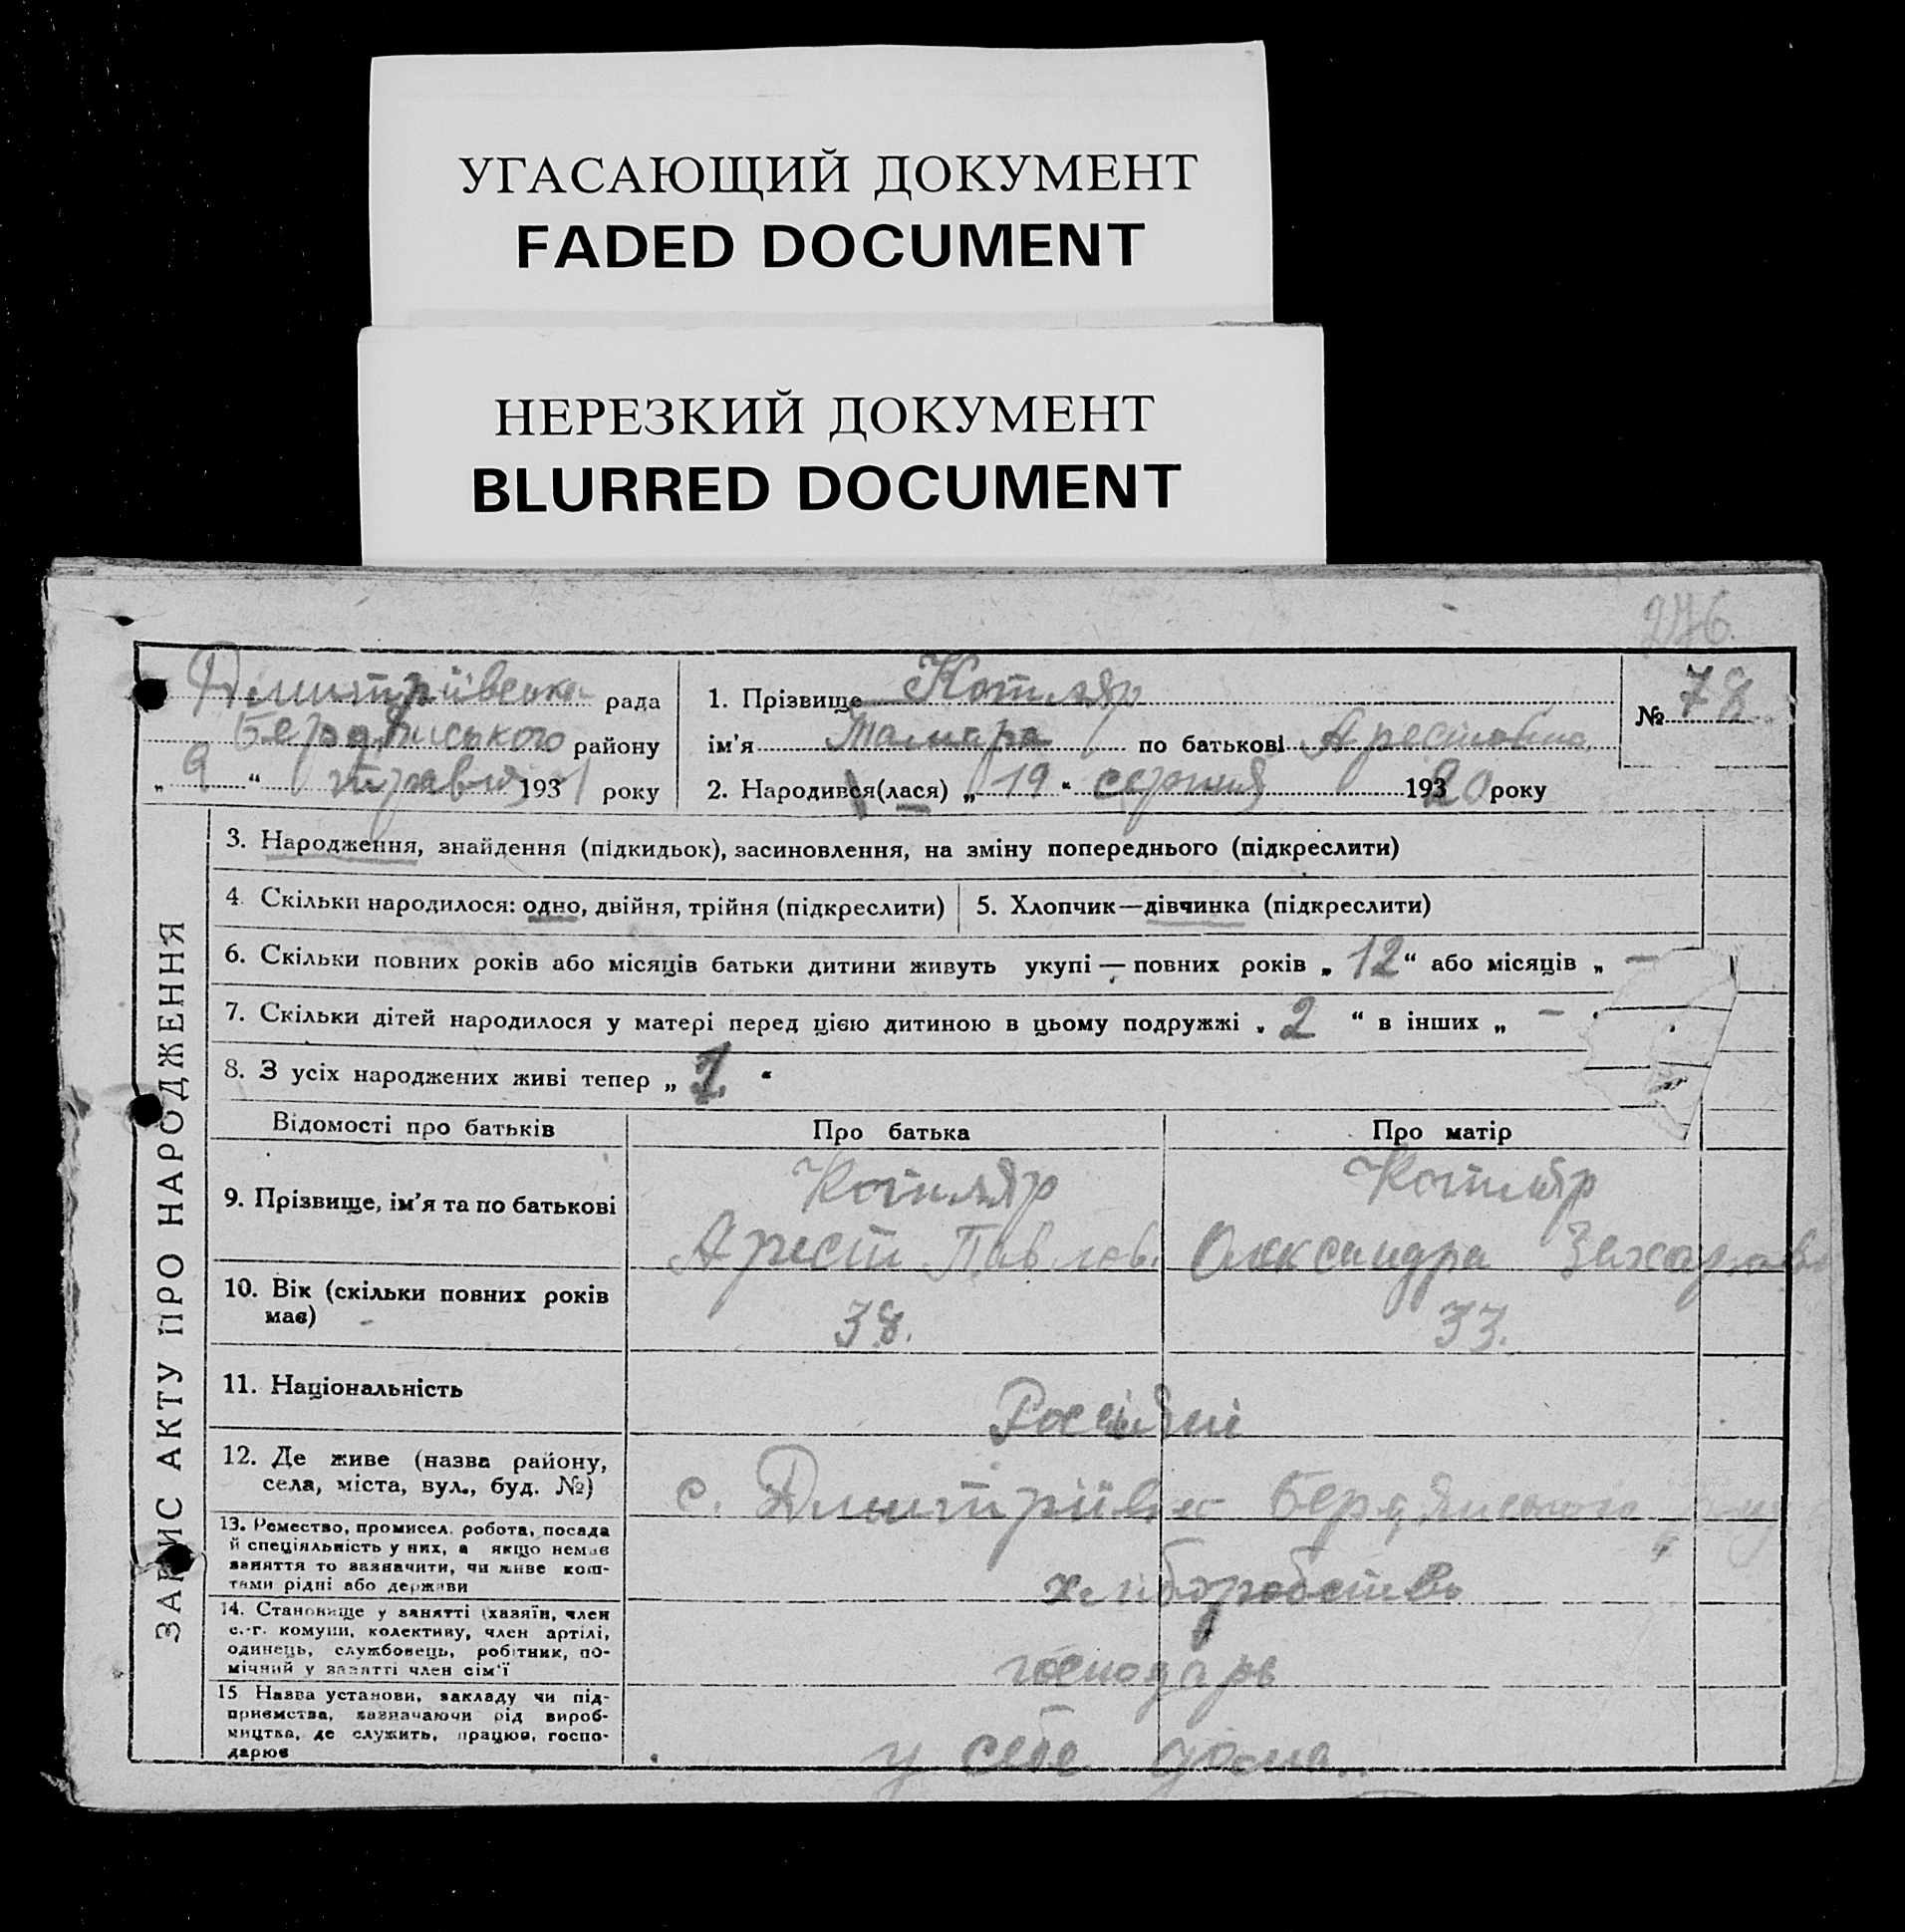 УГАСАЮЩИЙ ДОКУМЕНТ
FADED DOCUMENT
НЕРЕЗКИЙ ДОКУМЕНТ
BLURRED DOCUMENT
276.
Дмитріївська рада
Бердянського району
„ 9 “ травня 1931 року
1. Прізвище Котляр
ім'я Тамара по батькові Арестовна
2. Народився(лася) „ 19 “ серпня 193 20 року
№ 78
ЗАПИС АКТУ ПРО НАРОДЖЕННЯ
3. Народження, знайдення (підкидьок), засиновлення, на зміну попереднього (підкреслити)
4. Скільки народилося: одно, двійня, трійня (підкреслити)
5. Хлопчик—дівчинка (підкреслити)
6. Скільки повних років або місяців батьки дитини живуть укупі — повних років „ 12 “ або місяців „ —
7. Скільки дітей народилося у матері перед цією дитиною в цьому подружжі „ 2 “ в інших „ —
8. З усіх народжених живі тепер „ “
Відомості про батьків
Про батька
Про матір
9. Прізвище, ім'я та по батькові
Котляр
Арест Павлов.
Котляр
Олександра
10. Вік (скільки повних років
має)
38.
33.
11. Національність
Росіяні
12. Де живе (назва району,
села, міста, вул., буд. №)
с. Дмитріївка Бердянського
13. Ремество, промисел, робота, посада
й спеціяльність у них, а якщо немає
заняття то зазначити, чи живе кош-
тами рідні або держави
хліборобство
14. Становище у занятті (хазяїн, член
с.-г. комуни, колективу, член артілі,
одинець, службовець, робітник, по-
мічний у занятті член сім'ї
господарь
15 Назва установи, закладу чи під-
приємства, зазначаючи рід вироб-
ництва, де служить, працює, госпо-
дарює
у себе дома.